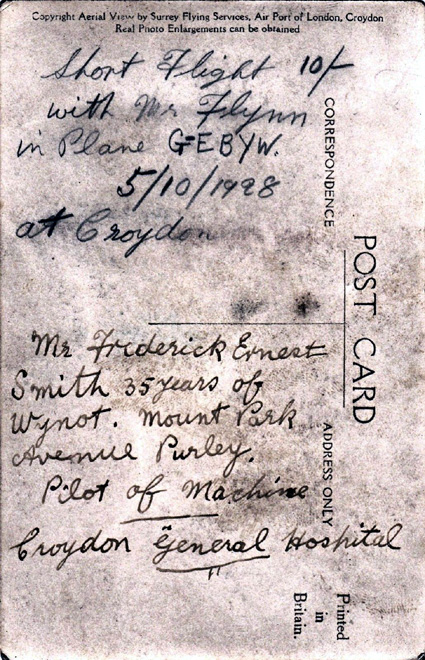 Copyright Aerial View by Surrey Flying Services, Air Port of London, Croydon
Real Photo Enlargements can be obtained
Short Flight 10/-
with Mr Flynn
in Plane G-EBYW.
5/10/1928
at Croydon
CORRESPONDENCE
POST CARD
Mr Frederick Ernest
Smith 35 years of
Wynot. Mount Park
Avenue Purley.
Pilot of Machine
Croydon General Hospital
ADDRESS ONLY
Printed
in
Britain.